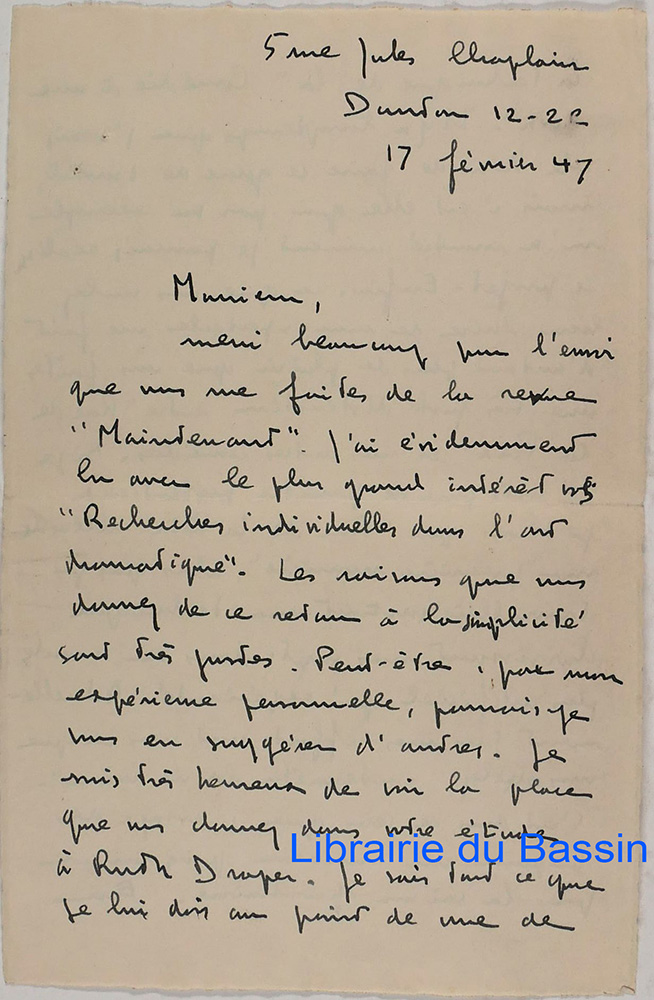 5 rue Jules Chaplain
Danton 12-22
17 février 47
Monsieur,
merci beaucoup pour l'envoi
que vous me faites de la revue
"Maintenant". J'ai évidemment
lu avec le plus grand intérêt vos
"Recherches individuelles dans l'art
dramatique". Les raisons que vous
donnez de ce retour à la simplicité
sont très justes. Peut-être, par mon
expérience personnelle, pourrais-je
vous en suggérer d'autres. Je
suis très heureux de voir la place
que vous donnez dans votre étude
à Ruth Draper. Je sais tout ce que
je lui dois au point de vue de
Librairie du Bassin